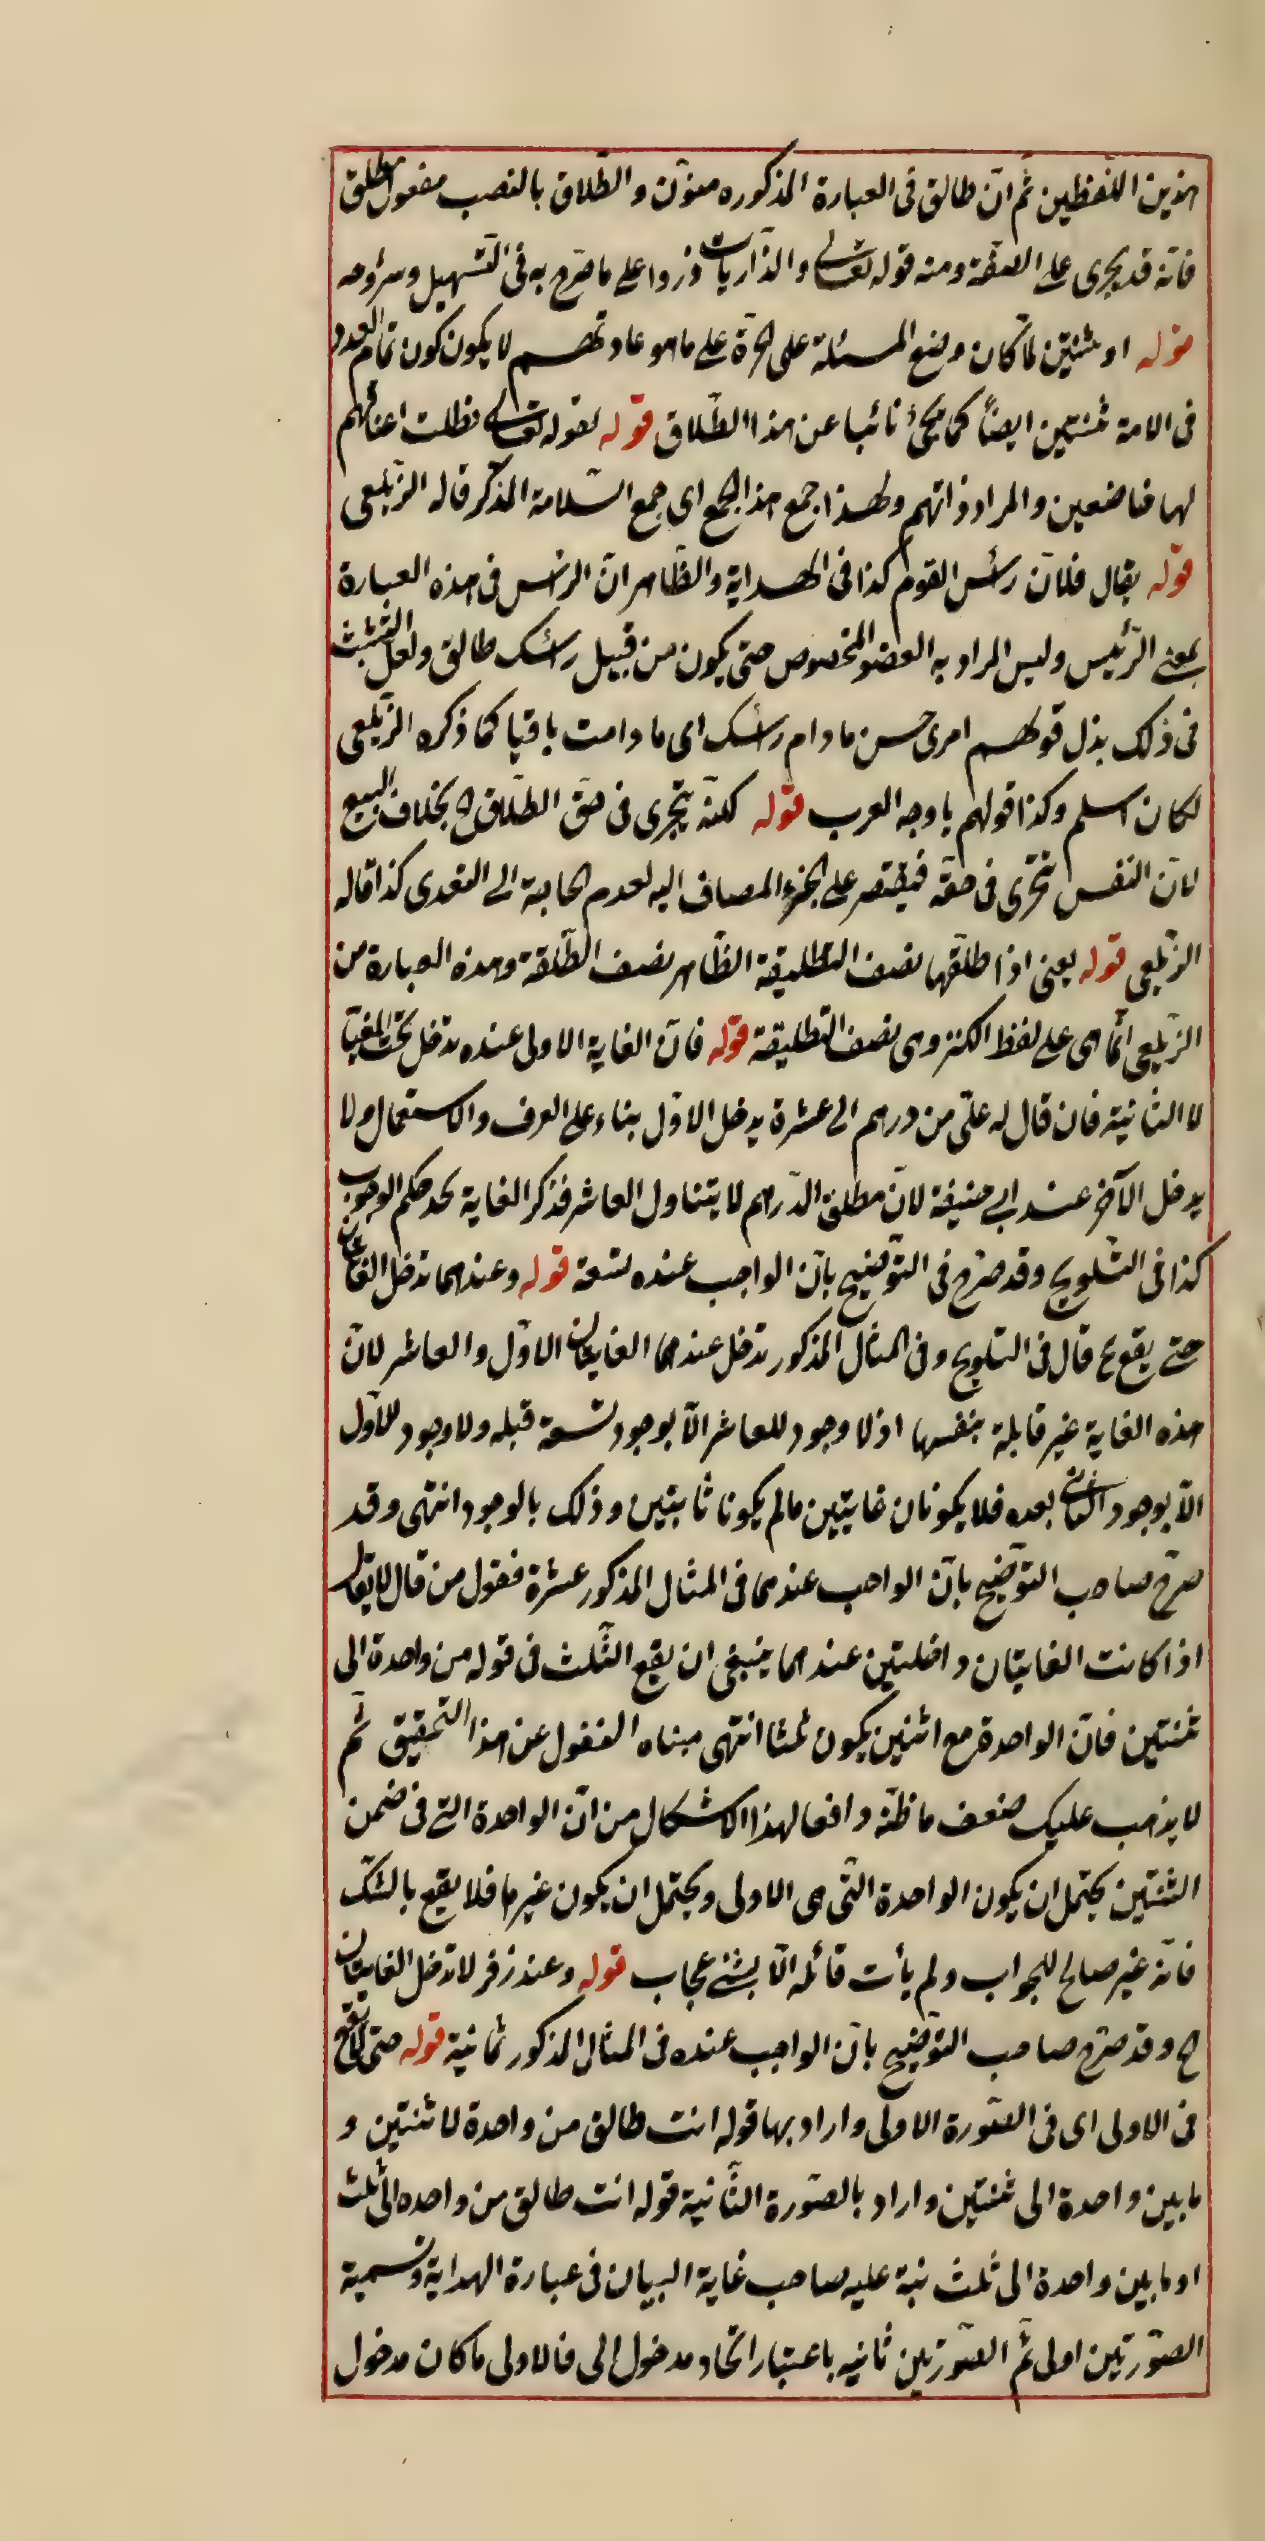 هذين اللفظين ثم انّ طالق فى العبارة المذكوره منوّن والطّلاق بالنصب مفعول مطلق
فانّه قد يجرى على الصفة ومنه قوله تعالى والذّاريات ذروا على ما صرّح به فى التّسهيل وشروحه
قوله او ثنتين لمّا كان وضع المسئلة على الحرّة على ما هو عادتهم لا يكون كون تمام العدد
فى الامة ثنتين ايضاً كما يجئ نائبا عن هذا الطّلاق قوله لقوله تعالى فظلت اعناقهم
لها خاضعين والمراد ذاتهم ولهذا جمع هذا الجمع اى جمع السّلامة المذكّر قاله الزّيلعى
قوله يقال فلان رأس القوم كذا فى الهداية والظّاهر انّ الرأس فى هذه العبارة
بمعنى الرّئيس وليس المراد به العضو المخصوص حتى يكون من قبيل رأسك طالق ولعلّ التشبث
فى ذلك بذل قولهم امرى حسن ما دام رأسك اى ما دامت باقيا كما ذكره الزّيلعى
لكان اسلم وكذا قولهم يا وجه العرب قوله لكنّه يتجزى فى حقّ الطّلاق الخ بخلاف البيع
لانّ النفس تتجزى فى حقّه فيقتصر على الجزء المضاف اليه لعدم الحاجة الى التعدى كذا قاله
الزّيلعى قوله يعنى اذا طلّقها نصف التطليقة الظّاهر نصف الطّلقة وهذه العبارة من
الزّيلعى انّما هى على لفظ الكنز وهى نصف التطليقة قوله فانّ الغاية الاولى عنده تدخل تحت المغيّا
لا الثانية فان قال له علىّ من درهم الى عشرة يدخل الاوّل بناء على العرف والاستعمال ولا
يدخل الآخر عند ابى حنيفة لانّ مطلق الدّرهم لا يتناول العاشر فذكر الغاية لمدّ حكم الوجوب
كذا فى التّلويح وقد صرّح فى التّوضيح بانّ الواجب عنده تسعة قوله وعندهما تدخل الغايتان
حتى يقع الخ قال فى التلويح وفى المثال المذكور تدخل عندهما الغايتان الاوّل والعاشر لانّ
هذه الغاية غير قابلة بنفسها اذ لا وجود للعاشر الّا بوجود تسعة قبله ولا وجود للاوّل
الّا بوجود الثانى بعده فلا يكونان غايتين ما لم يكونا ثابتين وذلك بالوجود انتهى وقد
صرّح صاحب التّوضيح بانّ الواجب عندهما فى المثال المذكور عشرة فقول من قال لا يقال
اذا كانت الغايتان داخلتين عندهما ينبغى ان يقع الثّلث فى قوله من واحدة الى
ثنتين فانّ الواحدة مع اثنين يكون ثلثا انتهى مبناه الغفول عن هذا التحقيق ثمّ
لا يذهب عليك ضعف ما ظنّه دافعا لهذا الاشكال من انّ الواحدة التى فى ضمن
الثنتين يحتمل ان يكون الواحدة التى هى الاولى ويحتمل ان يكون غيرها فلا يقع بالشّك
فانّه غير صالح للجواب ولم يأت قائله الّا بشئ عجاب قوله وعند زفر لا تدخل الغايتان
الخ وقد صرّح صاحب التّوضيح بانّ الواجب عنده فى المثال المذكور ثمانية قوله حتى لا يقع الخ
فى الاولى اى فى الصّورة الاولى واراد بها قوله انت طالق من واحدة لا ثنتين و
ما بين واحدة الى ثنتين واراد بالصّورة الثّانية قوله انت طالق من واحده الى ثلث
او ما بين واحدة الى ثلث نبّه عليه صاحب غاية البيان فى عبارة الهداية وتسمية
الصّورتين اولى ثمّ الصّورتين ثانيه باعتبار اتّحاد مدخول الى فالاولى ما كان مدخول